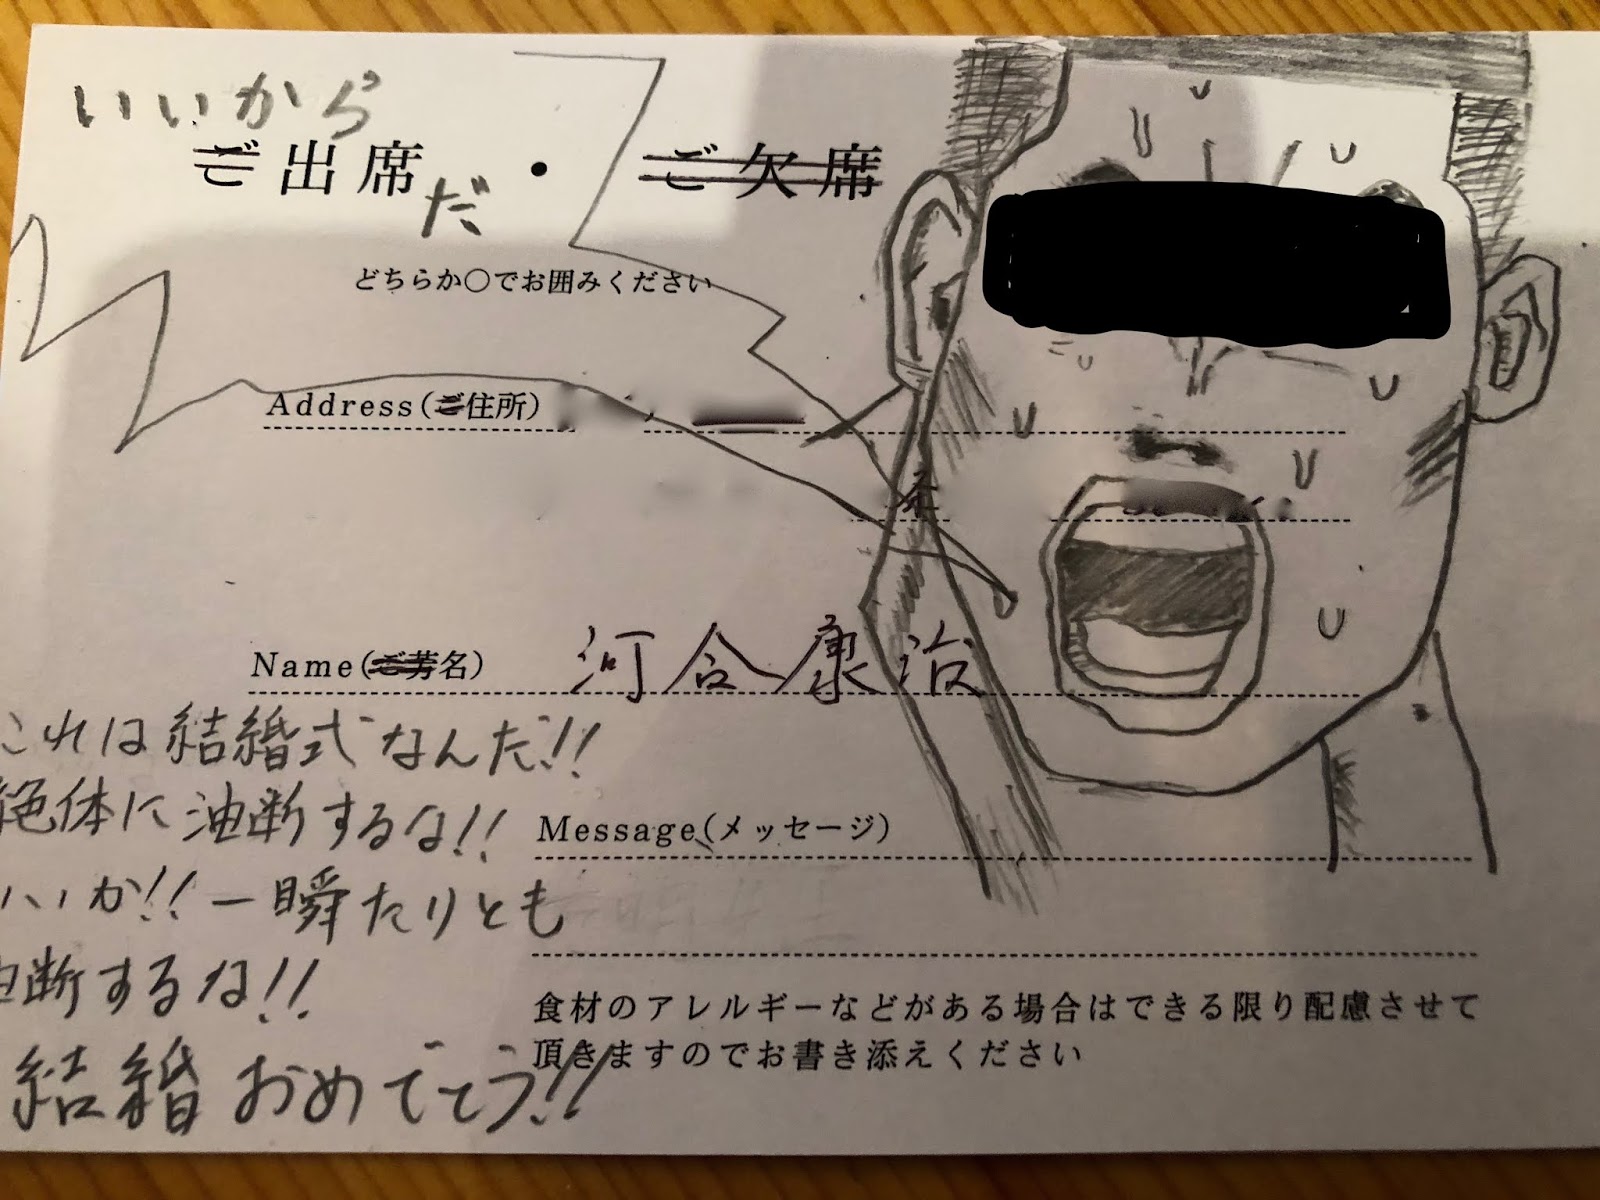 いいから
ご出席だ・ご欠席
どちらか○でお囲みください
Address(ご住所)
Name(ご芳名) 河合康治
これは結婚式なんだ!!
絶体に油断するな!!
Message(メッセージ)
いいか!!一瞬たりとも
油断するな!!
食材のアレルギーなどがある場合はできる限り配慮させて
頂きますのでお書き添えください
結婚おめでとう!!